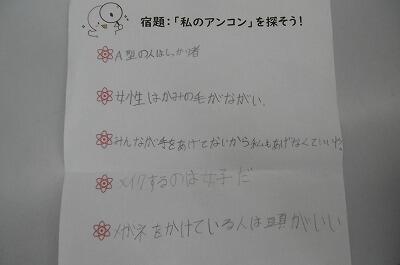 宿題:「私のアンコン」を探そう!
A型の人はしっかり者
女性はかみの毛がながい。
みんなが手をあげてないから私もあげなくていいや。
メイクするのは女子だ
メガネをかけている人は頭がいい